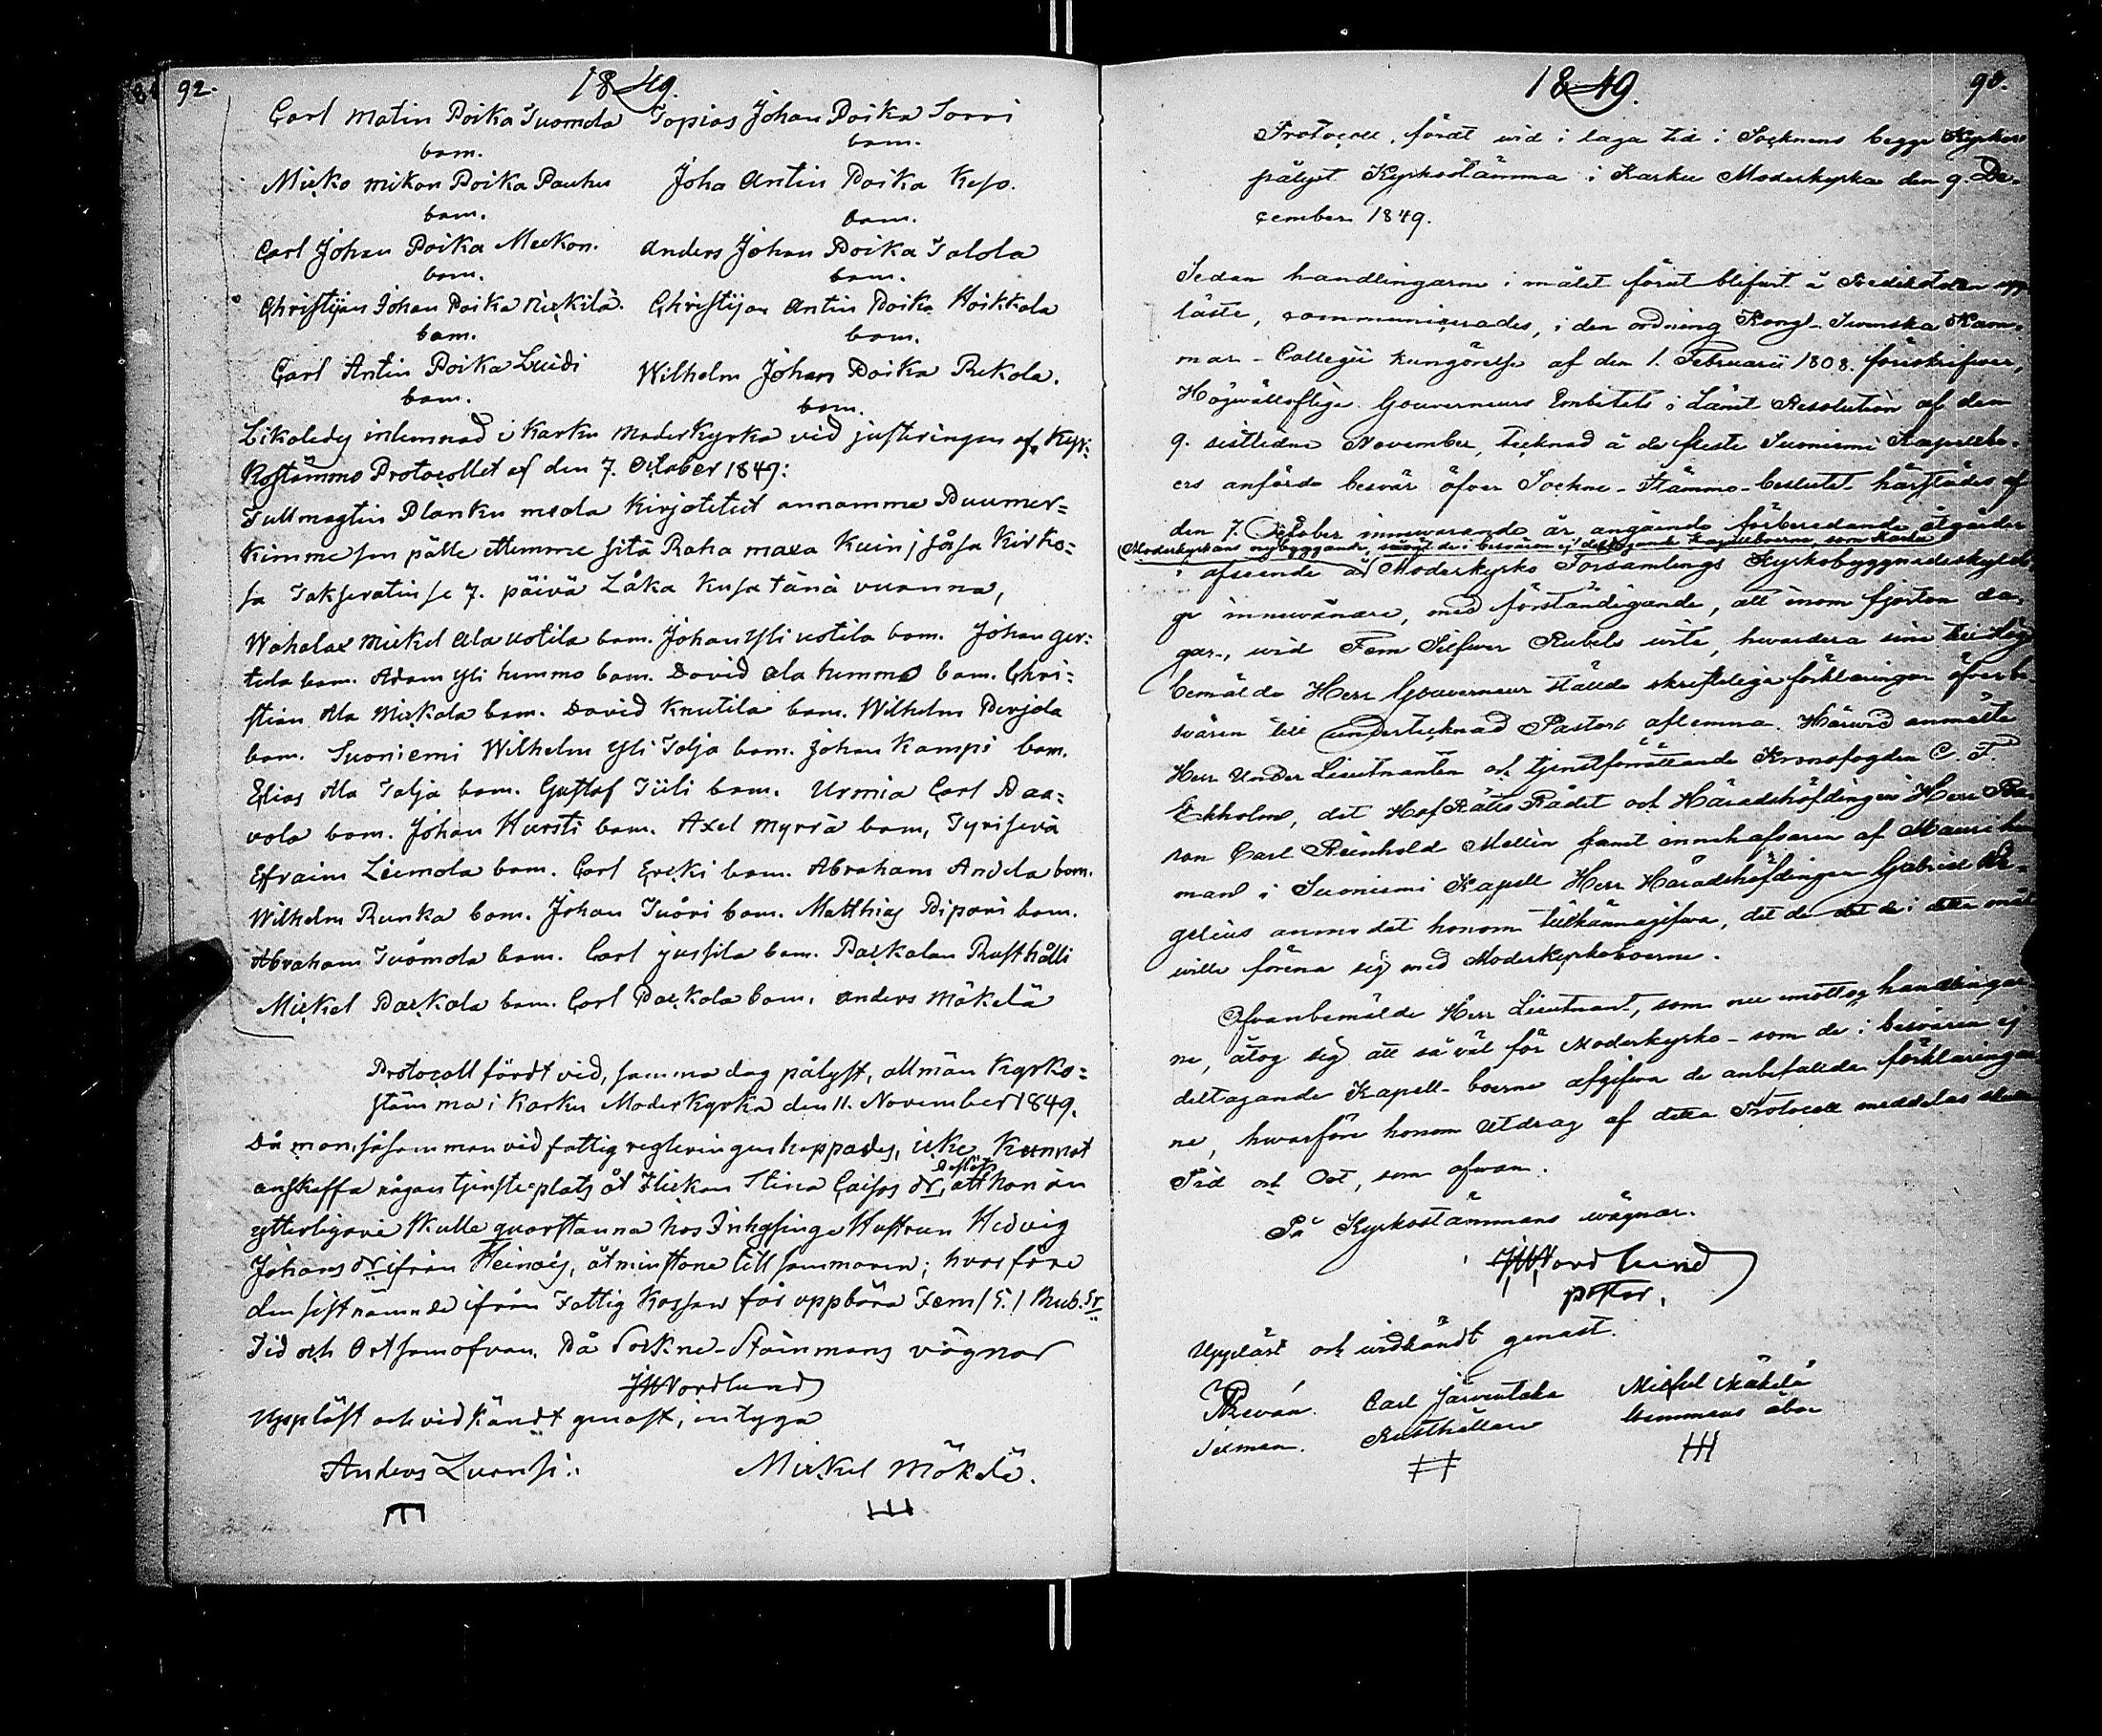 92.
1849.
Carl Matin Poika Tuomola Topias Johan Poika Sorri
bom. bom.
Micko mikon Poika Pauhu Joha Antin Poika Keso.
bom. bom.
Carl Johan Poika Meckon. Anders Johan Poika Talola
bom. bom.
Christijan Johan Poika Kirkilä. Christijan Antin Poika Hoikkola
bom. bom.
Carl Antin Poika Luidi Wilhelm Johan Poika Rekola.
bom. bom.
Likaledes inlemnad i Karku Moderkyrka vid justeringen af Kyr:
kostämmo Protocollet af den 7. October 1849:
Tullmagtin Planku meda Kirjotetut annamme Puumer=
kimme sen pälle ettemme sitä Raha maxa kuin j såsa kirko=
sa Takseratin se 7. päivä Låka kusa tänä vuonna,
Wahalax Mickel Ala uotila bom. Johan Yli uotila bom. Johan ger:
tula bom. Adam Yli hummo bom. David Ala hummo bom. Chri:
stian Ala Mickola bom. David Knutila bom. Wilhelm Perjola
bom. Suoniemi Wilhelm Yli Talja bom. Johan Kampi bom.
Elias Ala Talja bom. Gustaf Tiili bom. Urmia Carl Paa=
vola bom. Johan Hursti bom. Axel Myrrä bom, Tyrisevä
Efraim Liemola bom. Carl Ercki bom. Abraham Andela bom.
Wilhelm Runka bom. Johan Tuori bom. Matthias Pipari bom.
Abraham Tuomola bom. Carl jussila bom. Packalan Rusthålli
Mickel Packala bom. Carl Packala bom. Anders Mäkelä
Protocoll fördt vid, samma dag pålyst, allmän Kyrko=
stämma i Karku Moderkyrka den 11. November 1849.
Då man, såsom man vid fattig regleringen hoppades, icke kunnat
beslöts
anskaffa någon tjensteplats åt Flickan Stina Caisas dr, att hon än
ytterligare skulle qvarstanna hos Inhysinge Hustrun Hedvig
Johans dr ifrån Heinois, åtminstone till sommaren; hvarföre
den sistnämnde ifrån Fattig Kassan får uppbära Fem /5./ Rub. Sr
Tid och Ort som ofvan. På Sockne-Stämmans vägnar
JWNordlund
Uppläst och vidkändt genast, intyga
Anders Luonsi. Mickel Mäkelä.
1849.
Protocoll, fördt wid i laga tid i Socknens begge Kyrkor
pålyst Kyrkostämma i Karku Moderkyrka den 9. De-
cember 1849.
Sedan handlingarne i målet förut blifwit å Predikstolen upp
läste, communicerades, i den ordning Kongl. Swenska Kam-
mar-Collegii kungörelse af den 1. Februarii 1808. föreskrifwer,
Högwällofliga Gouverneurs Embetets i Länet Resolution af den
9. sistledne November, tecknad å de fleste Suoniemi Kapellbo-
ers anförda beswär öfver Sockne-Stämmo-beslutet härstädes af
den 7. October innewarande år, angående förberedande åtgärder
Moderkyrkans nybyggande, såwäl de i beswären ej deltagande Kapellboerne, som Karku
i afseende å Moderkyrko Församlings Kyrkobyggnadsskyldi-
ge innewånare, med förständigande, att inom fjorton da-
gar, wid Fem Silfwer Rubels wite, hwardera sine till hög
bemälde Herr Gouverneur stälde skrifteliga förklaringar öfwer be-
swären till undertecknad Pastor aflemna. Härwid anmälte
Herr Under Lieutnanten och tjenstförrättande Kronofogden C. F.
Ekholm, det HofRätts Rådet och Häradshöfdingen Herr Ba
ron Carl Reinhold Mellin samt innehafwaren af Mauri hem
man i Suoniemi Kapell Herr Häradshöfdingen Gabriel
gelius anmodat honom tillkännagifwa, det de i detta mål
wille förena sig med Moderkyrkoboerne.
Ofvanbemälde Herr Lieutnant, som nu emottog handlingar
ne, åtog sig att så väl för Moderkyrko- som de i beswären ej
deltagande Kapell-boerne afgifwa de anbefallda förklaringar
ne, hwarföre honom Utdrag af detta Protocoll meddelas
Tid och Ort, som ofwan.
På Kyrkostämmans wägnar.
JWNordlund
pastor.
Uppläst och widkändt genast.
Carl Järwentaka Michel Mäkelä
Rusthållare Hemmans åbo